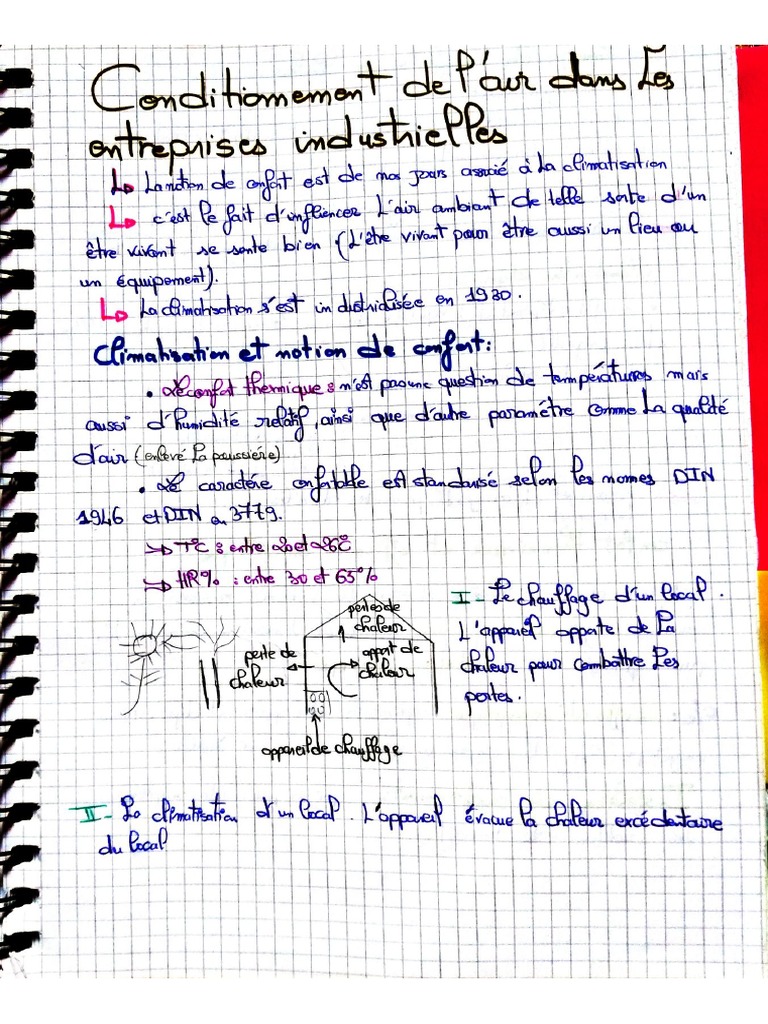 Conditionnement de l'air dans Les
entreprises industrielles
La notion de confort est de nos jours associé à la climatisation
c'est le fait d'influencer L'air ambiant de telle sorte d'un
être vivant se sente bien (L'être vivant peur être aussi un lieu ou
un équipement).
La climatisation s'est industrialisée en 1930.
Climatisation et notion de confort:
• Le confort thermique : n'est pas une question de températures mais
aussi d'humidité relatif, ainsi que d'autre paramètre comme La qualité
d'air (enlevé La poussière)
• Le caractére confortable est standarisé selon les normes DIN
1946 et DIN en 3779.
T°C : entre 20 et 26°C
HR% : entre 30 et 65%
I - Le chauffage d'un local.
L'appareil apporte de La
chaleur pour combattre Les
pertes.
pertes de
chaleur
perte de
chaleur
apport de
chaleur
appareil de chauffage
II - La climatisation d'un local. L'appareil évacue la chaleur excédentaire
du local